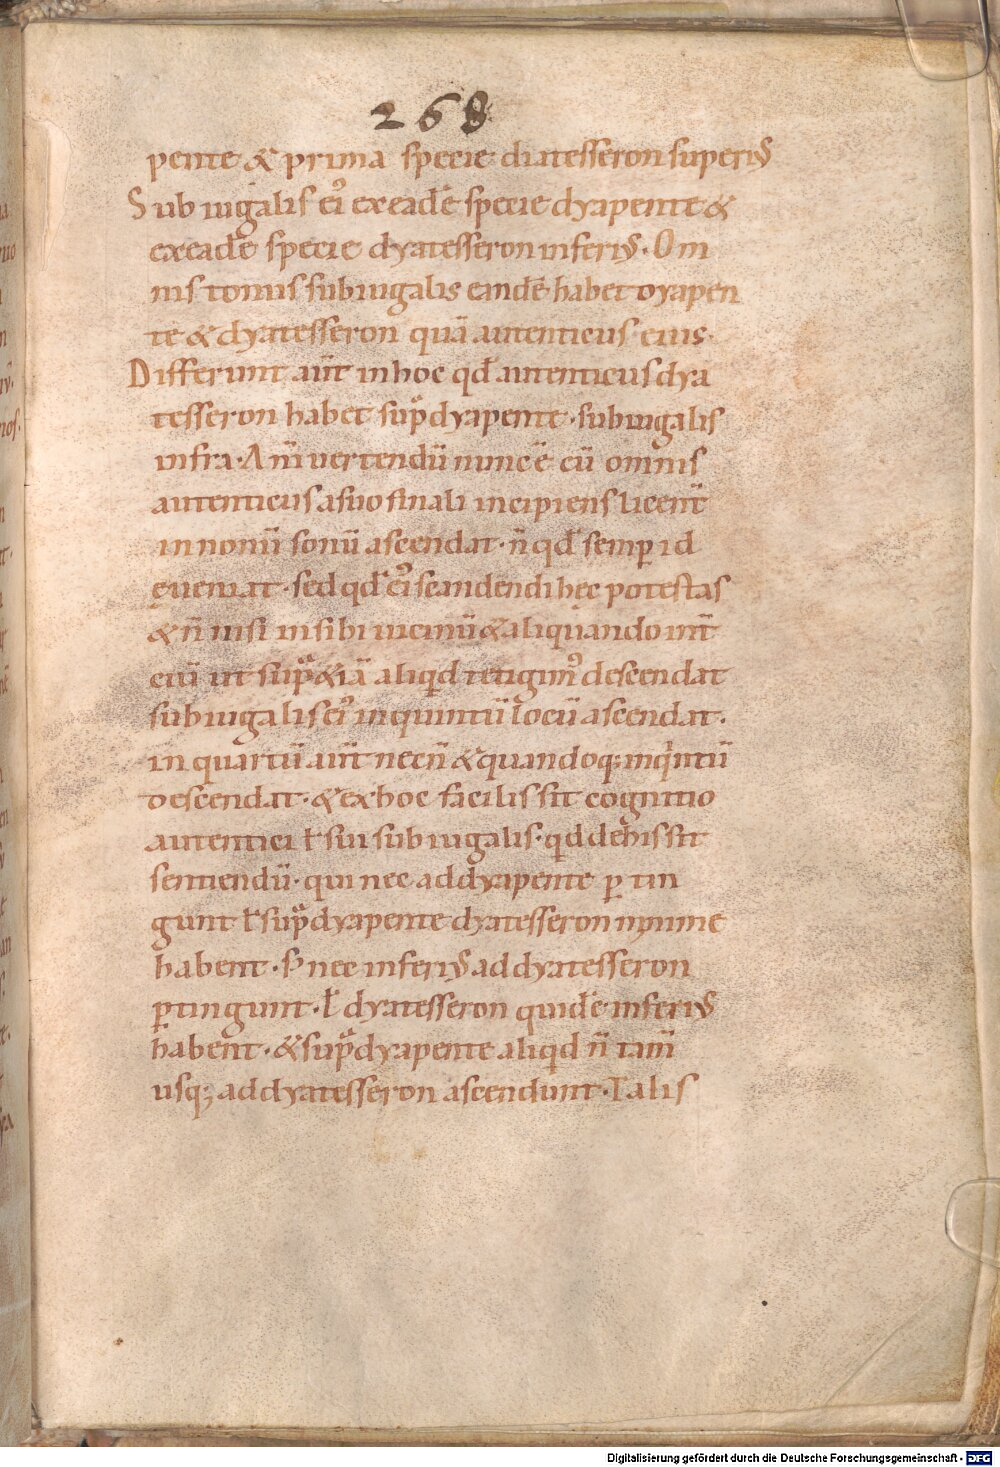 268
pente & prima specie diatesseron superiꝰ
Sub iugalis ei᷒ ex eadē specie dyapente &
ex eadē specie dyatesseron inferiꝰ. Om
nis tonus subiugalis eandē habet dyapen
te & dyatesseron quā autenticus eius.
Differunt aūt in hoc qđ autenticus dya
tesseron habet sup̄ dyapente. subiugalis
infra. Aīm uertendū nunc ē cū omnis
autenticus a suo finali incipiens licent̄
in nonū sonū ascendat. n̄ qđ semp̱ id
ęueniat. sed qđ ei᷒ scandendi hęc potestas
& n̄ nisi in sibi uicinū & aliquando int̄
eiū ut sup̄ & iā aliqđ tetigim᷒ descendat
subiugalis ei᷒ in quintū locū ascendat.
in quartū aūt necn̄ & quandoq; in qintū
descendat. & ex hoc facilis sit cognitio
autentici ł sui subiugalis. qđ de his sit
sentiendū. qui nec ad dyapente ꝑ tin
gunt ł sup̄ dyapente dyatesseron mynime
habent. s; nec inferiꝰ ad dyatesseron
ꝑtingunt. ł dyatesseron quidē inferiꝰ
habent. & sup̄ dyapente aliqđ n̄ tam̄
usq; ad dyatesseron ascendunt. Talis
Digitalisierung gefördert durch die Deutsche Forschungsgemeinschaft - DFG